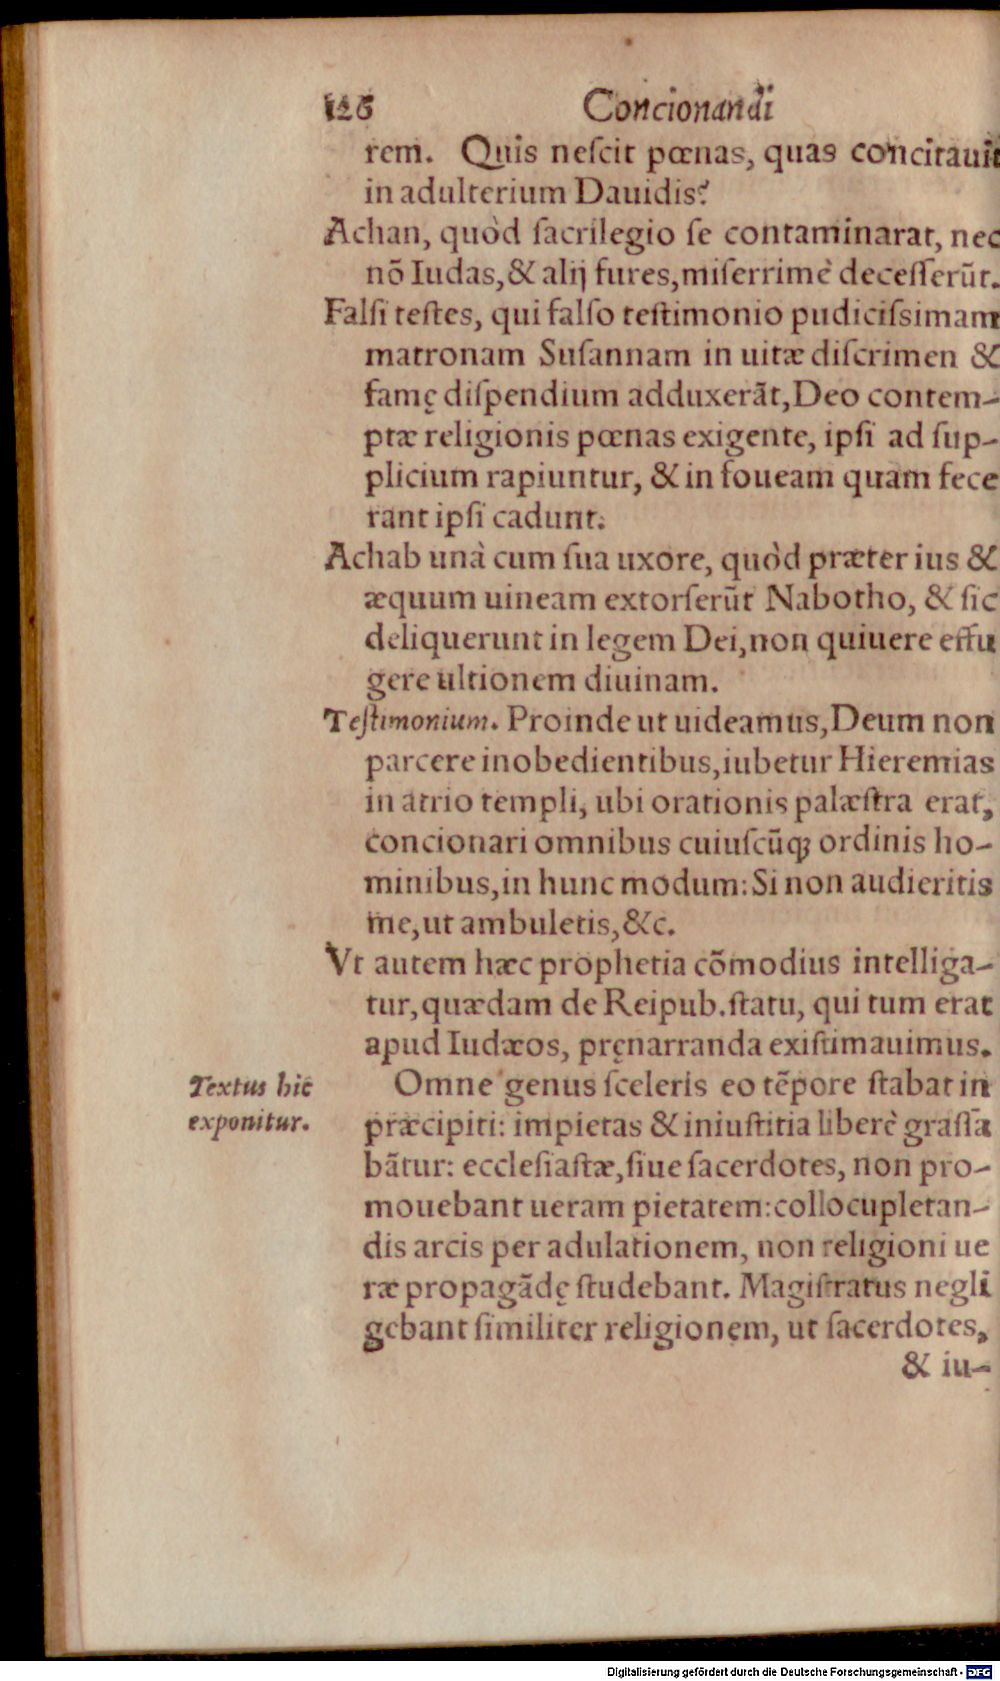 126 Concionandi
rem. Quis neſcit pœnas, quas concitauit
in adulterium Dauidis?
Achan, quòd ſacrilegio ſe contaminarat, nec
nõ Iudas, & alij fures, miſerrimè deceſſerũt.
Falſi teſtes, qui falſo teſtimonio pudiciſsimam
matronam Suſannam in uitæ diſcrimen &
famę diſpendium adduxerãt, Deo contem-
ptæ religionis pœnas exigente, ipſi ad ſup-
plicium rapiuntur, & in foueam quam fece
rant ipſi cadunt.
Achab unà cum ſua uxore, quòd præter ius &
æquum uineam extorſerũt Nabotho, & ſic
deliquerunt in legem Dei, non quiuere effu
gere ultionem diuinam.
Teſtimonium. Proinde ut uideamus, Deum non
parcere inobedientibus, iubetur Hieremias
in atrio templi, ubi orationis palæſtra erat,
concionari omnibus cuiuſcũq; ordinis ho-
minibus, in hunc modum: Si non audieritis
me, ut ambuletis, &c.
Vt autem hæc prophetia cõmodius intelliga-
tur, quædam de Reipub. ſtatu, qui tum erat
apud Iudæos, pręnarranda exiſtimauimus.
Textus hic
exponitur.
Omne genus ſceleris eo tẽpore ſtabat in
præcipiti: impietas & iniuſtitia liberè graſſa
bãtur: eccleſiaſtæ, ſiue ſacerdotes, non pro-
mouebant ueram pietatem: collocupletan-
dis arcis per adulationem, non religioni ue
ræ propagãdę ſtudebant. Magiſtratus negli
gebant ſimiliter religionem, ut ſacerdotes,
& iu-
Digitalisierung gefördert durch die Deutsche Forschungsgemeinschaft - DFG